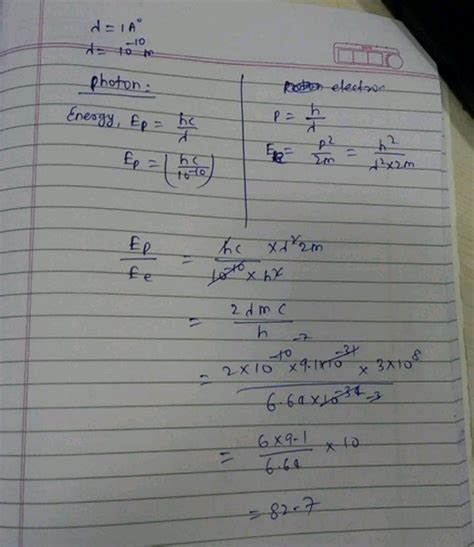 λ = 1A°
λ = 10^-10 m
photon:
Energy, Ep = hc/λ
Ep = (hc/10^-10)
electron
P = h/λ
E = p²/2m = h²/λ²×2m
Ep/Ee = hc × λ² 2m / 10^-10 × h²
= 2λmc/h
= 2×10^-10 × 9.1×10^-31 × 3×10^8 / 6.64×10^-34
= 6×9.1/6.64 × 10
= 82.7